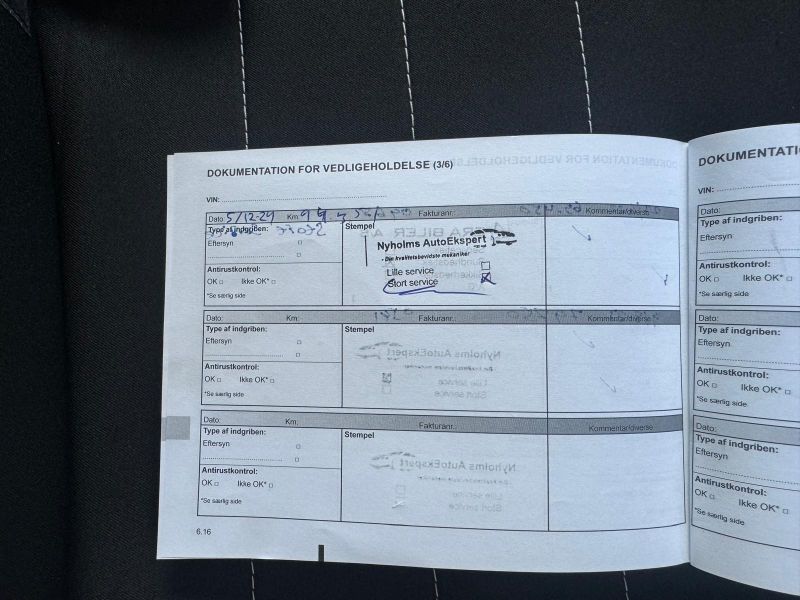 DOKUMENTATION FOR VEDLIGEHOLDELSE (3/6)
VIN:
Dato: 5/12-24 Km: Fakturanr.: Kommentar/diverse
Type af indgriben: Stempel
Eftersyn
Nyholms AutoEkspert
- Din kvalitetsbevidste mekaniker
Lille service
Stort service
Antirustkontrol:
OK Ikke OK*
*Se særlig side
Dato: Km: Fakturanr.: Kommentar/diverse
Type af indgriben: Stempel
Eftersyn
Antirustkontrol:
OK Ikke OK*
*Se særlig side
Dato: Km: Fakturanr.: Kommentar/diverse
Type af indgriben: Stempel
Eftersyn
Antirustkontrol:
OK Ikke OK*
*Se særlig side
6.16
DOKUMENTATI
VIN:
Dato:
Type af indgriben:
Eftersyn
Antirustkontrol:
OK Ikke OK*
*Se særlig side
Dato:
Type af indgriben:
Eftersyn
Antirustkontrol:
OK Ikke OK*
*Se særlig side
Dato:
Type af indgriben:
Eftersyn
Antirustkontrol:
OK Ikke OK*
*Se særlig side